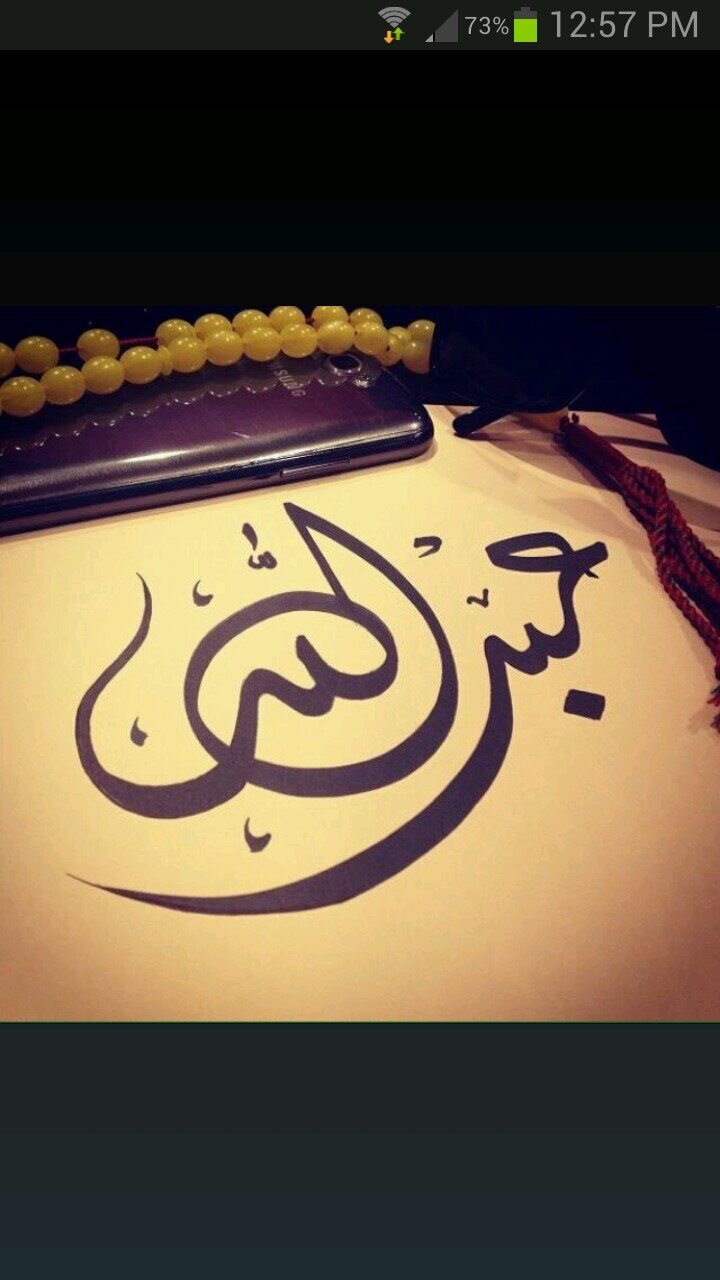 73% 12:57 PM
SAMSUNG
عبد الله